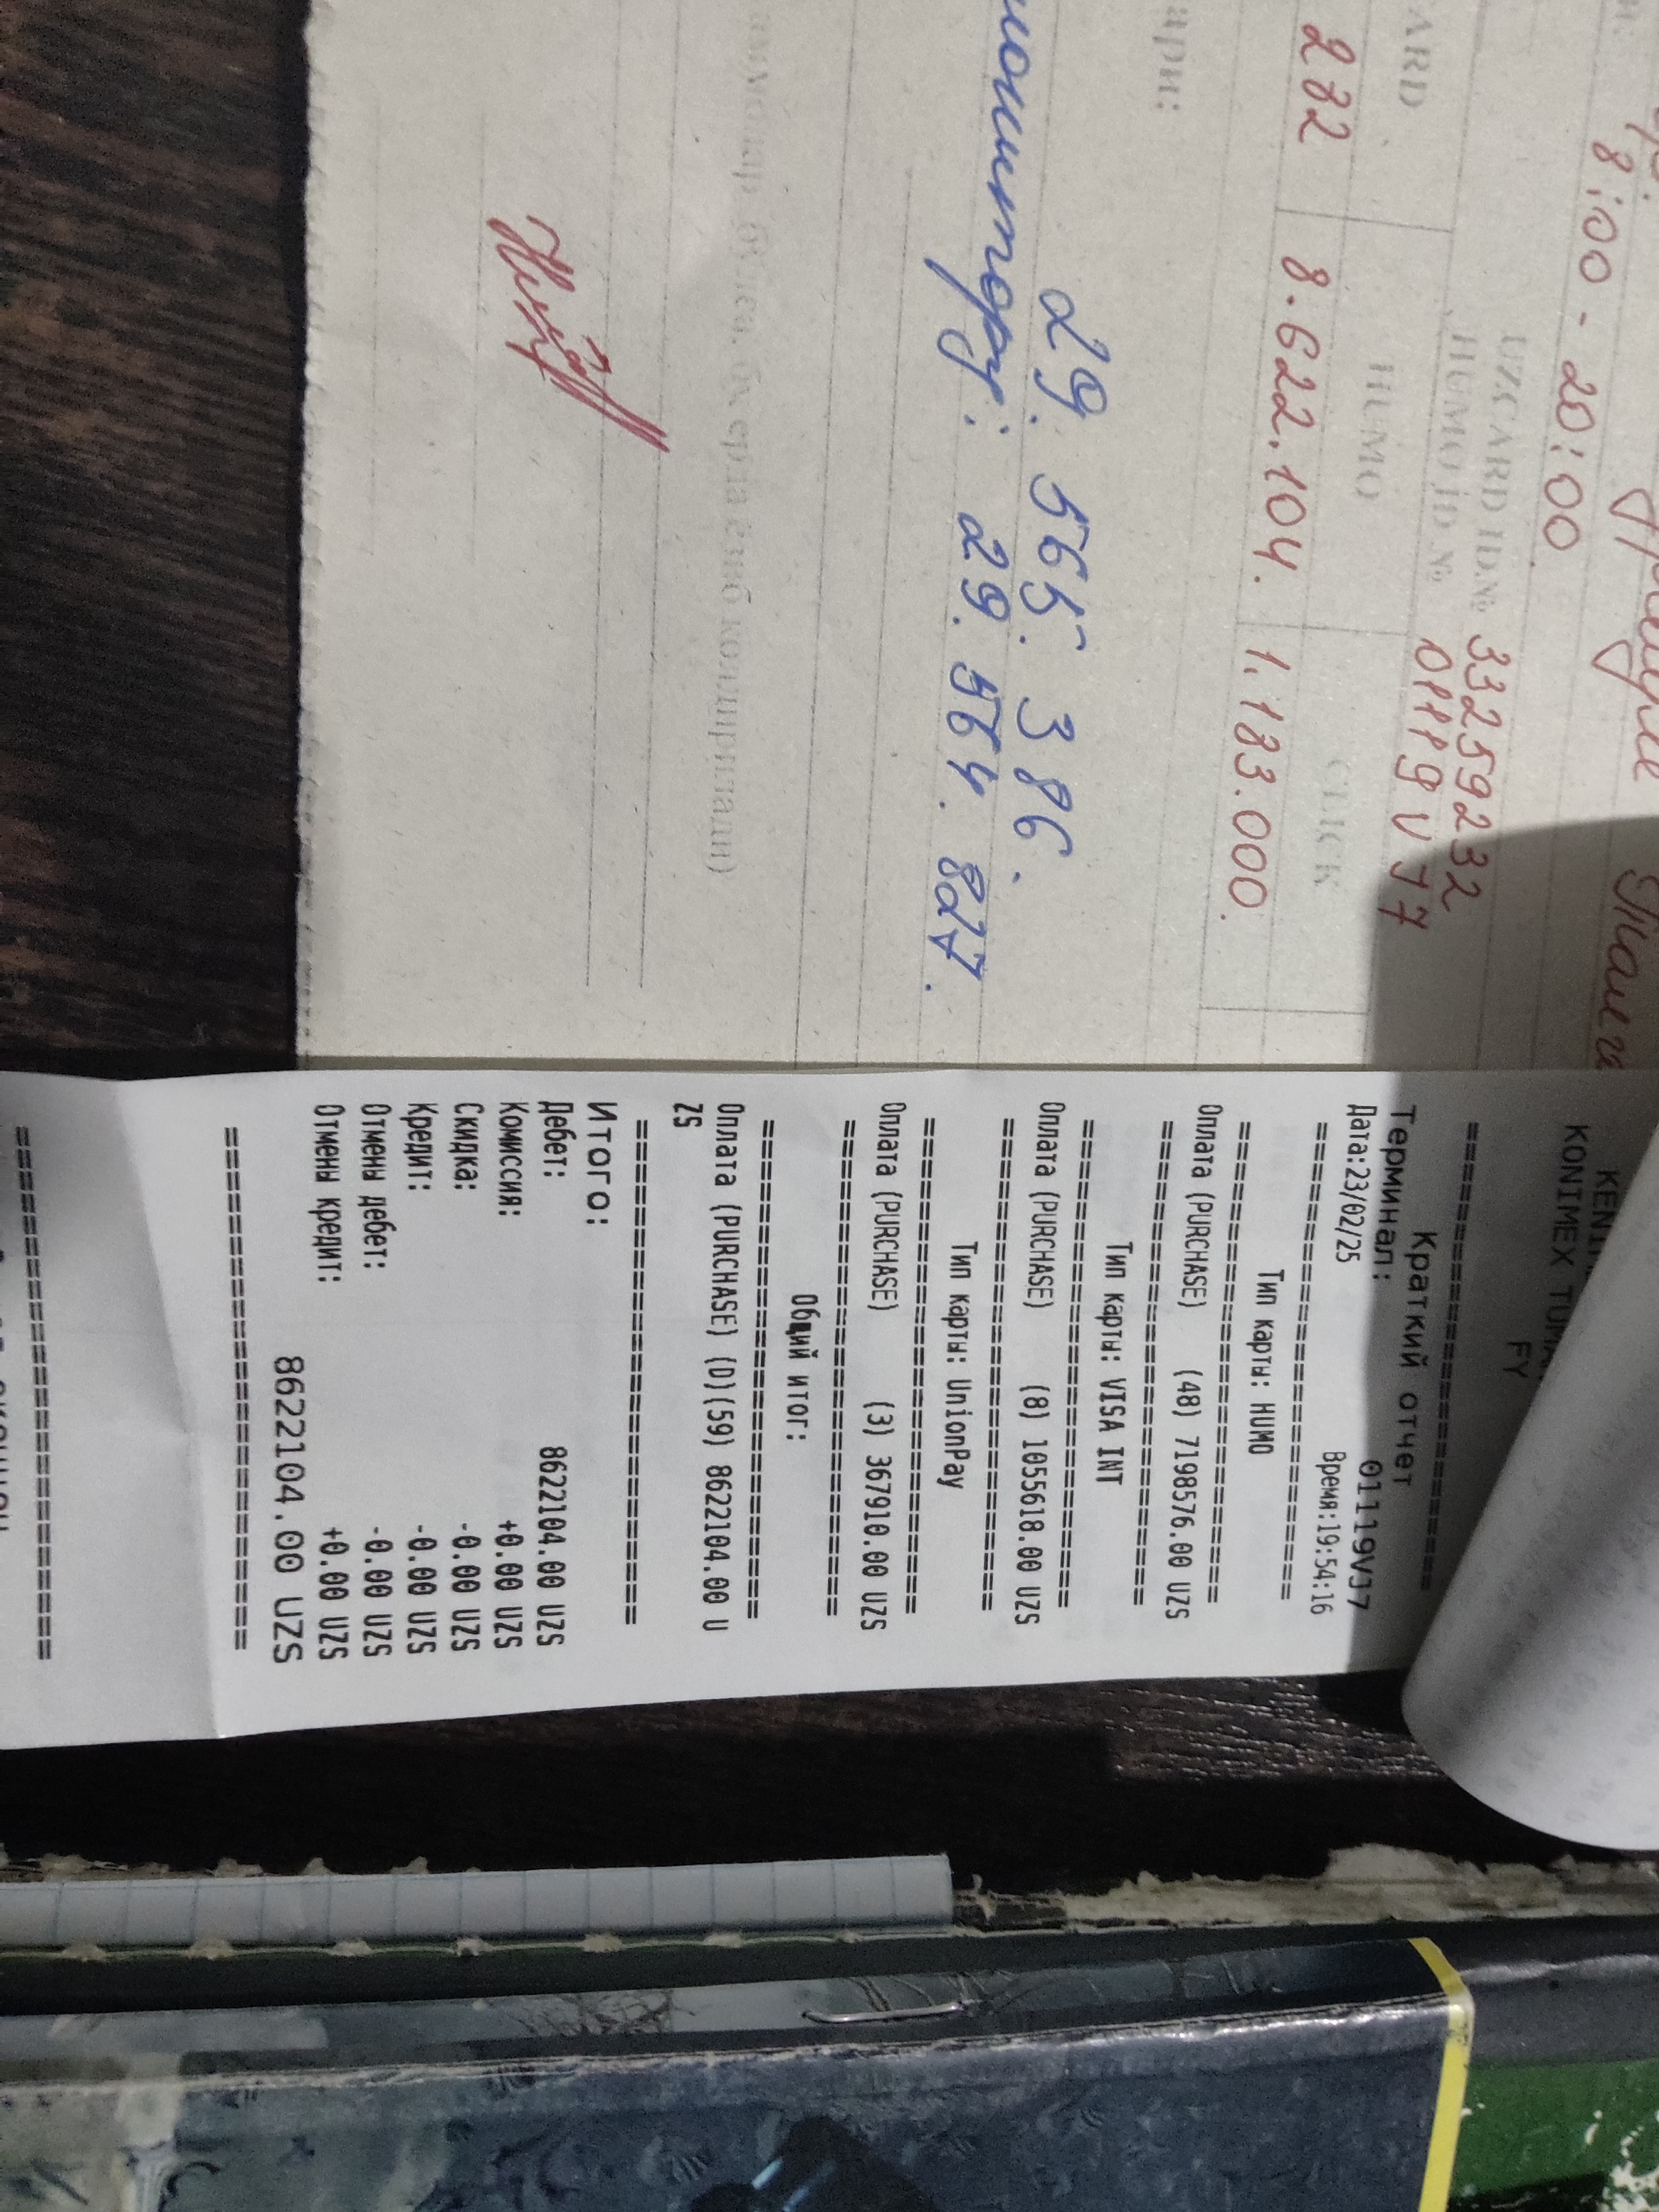 8:00 - 20:00
UZCARD ID.№ 33259232
HUMO İD № 01119VJ7
ARD HUMO CLICK
282 8.622.104. 1.183.000.
29. 565. 386.
29. 564. 827.
KONIMEX
FY
Краткий отчет
Терминал: 01119VJ7
Дата:23/02/25 Время:19:54:16
============================
Тип карты: HUMO
============================
Оплата (PURCHASE) (48) 7198576.00 UZS
============================
Тип карты: VISA INT
============================
Оплата (PURCHASE) (8) 1055618.00 UZS
============================
Тип карты: UnionPay
============================
Оплата (PURCHASE) (3) 367910.00 UZS
============================
Общий итог:
============================
Оплата (PURCHASE) (0)(59) 8622104.00 U
ZS
============================
Итого:
Дебет: 8622104.00 UZS
Комиссия: +0.00 UZS
Скидка: -0.00 UZS
Кредит: -0.00 UZS
Отмены дебет: -0.00 UZS
Отмены кредит: +0.00 UZS
8622104.00 UZS
============================
============================